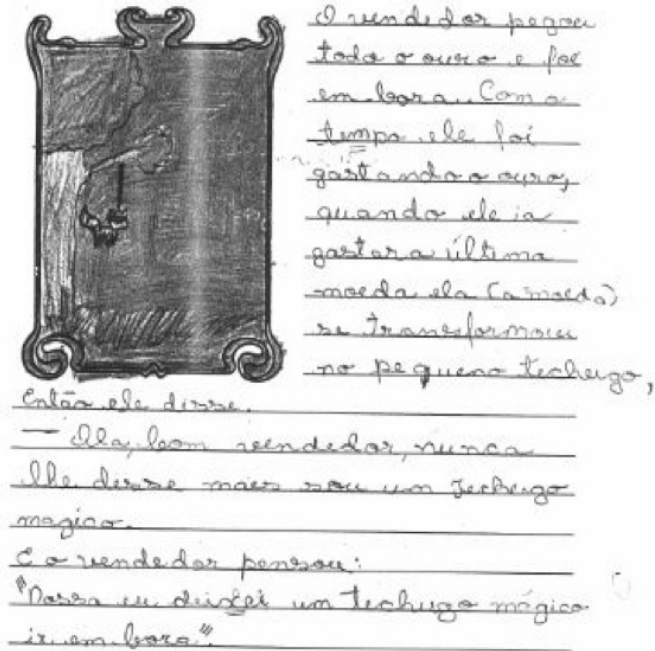 O vendedor pegou
todo o ouro e foi
em bora. Com o
tempo ele foi
gastando o ouro,
quando ele ia
gastar a última
moeda ela (a moeda)
se transformou
no pequeno techugo,
Então ele disse.
— Ola, bom vendedor, nunca
lhe desse mais sou um techugo
magico.
E o vendedor pensou:
"Nossa eu deixei um techugo mágico
ir em bora".